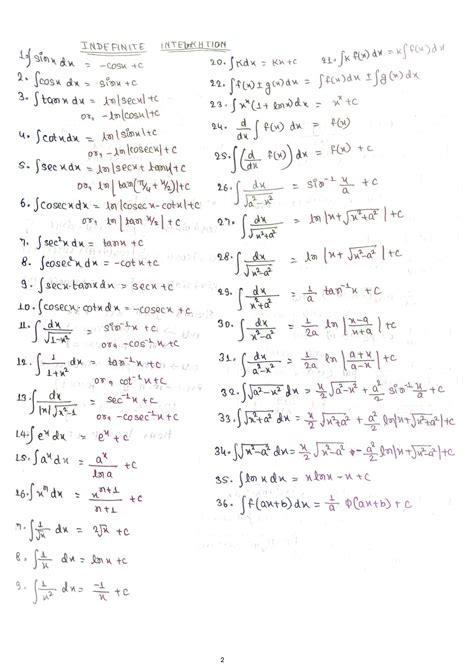 INDEFINITE INTEGRATION
1. ∫sinx dx = -cosx + c
2. ∫cosx dx = sinx + c
3. ∫tanx dx = ln|secx| + c
or, -ln|cosx| + c
4. ∫cotx dx = ln|sinx| + c
or, -ln|cosecx| + c
5. ∫secx dx = ln|secx + tanx| + c
or, ln|tan(π/4 + x/2)| + c
6. ∫cosecx dx = ln|cosecx - cotx| + c
or, ln|tan x/2| + c
7. ∫sec²x dx = tanx + c
8. ∫cosec²x dx = -cotx + c
9. ∫secx·tanx dx = secx + c
10. ∫cosecx·cotx dx = -cosecx + c
11. ∫dx/√(1-x²) = sin⁻¹x + c
or, -cos⁻¹x + c
12. ∫1/(1+x²) dx = tan⁻¹x + c
or, cot⁻¹x + c
13. ∫dx/(|x|√(x²-1)) = sec⁻¹x + c
or, -cosec⁻¹x + c
14. ∫eˣ dx = eˣ + c
15. ∫aˣ dx = aˣ/ln a + c
16. ∫xⁿ dx = xⁿ⁺¹/(n+1) + c
7. ∫1/√x dx = 2√x + c
8. ∫1/x dx = lnx + c
9. ∫1/x² dx = -1/x + c
20. ∫K dx = Kx + c
21. ∫K f(x) dx = K∫f(x) dx
22. ∫f(x) ± g(x) dx = ∫f(x) dx ± ∫g(x) dx
23. ∫xˣ(1 + lnx) dx = xˣ + c
24. d/dx ∫f(x) dx = f(x)
25. ∫(d/dx f(x)) dx = f(x) + c
26. ∫dx/√(a²-x²) = sin⁻¹ x/a + c
27. ∫dx/√(x²+a²) = ln|x + √(x²+a²)| + c
28. ∫dx/√(x²-a²) = ln|x + √(x²-a²)| + c
29. ∫dx/(x²+a²) = 1/a tan⁻¹x + c
30. ∫dx/(x²-a²) = 1/2a ln|(x-a)/(x+a)| + c
31. ∫dx/(a²-x²) = 1/2a ln|(a+x)/(a-x)| + c
32. ∫√(a²-x²) dx = x/2 √(a²-x²) + a²/2 sin⁻¹ x/a + c
33. ∫√(x²+a²) dx = x/2 √(x²+a²) + a²/2 ln|x + √(x²+a²)| + c
34. ∫√(x²-a²) dx = x/2 √(x²-a²) - a²/2 ln|x + √(x²-a²)| + c
35. ∫lnx dx = xlnx - x + c
36. ∫f(ax+b) dx = 1/a φ(ax+b) + c
2